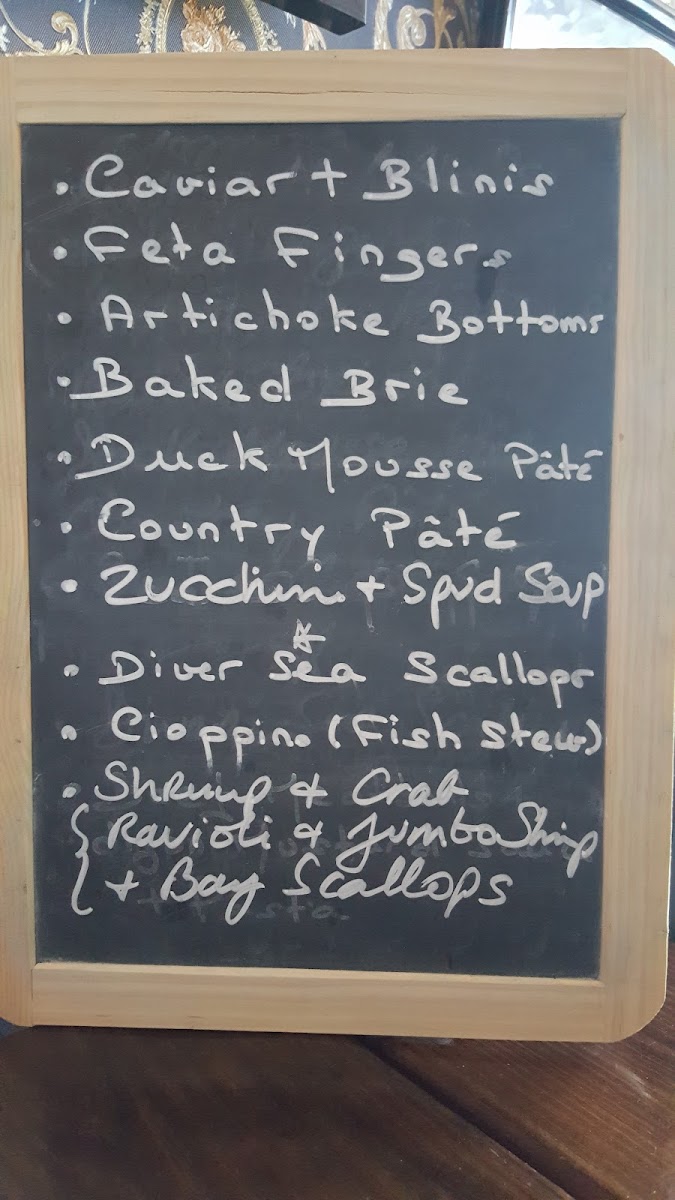 • Caviar + Blinis
• Feta Fingers
• Artichoke Bottoms
• Baked Brie
• Duck Mousse Pâté
• Country Pâté
• Zucchini + Spud Soup
• Diver Sea Scallops
• Cioppino (Fish Stew)
• Shrimp & Crab
{ Ravioli & Jumbo Shrimp
+ Bay Scallops